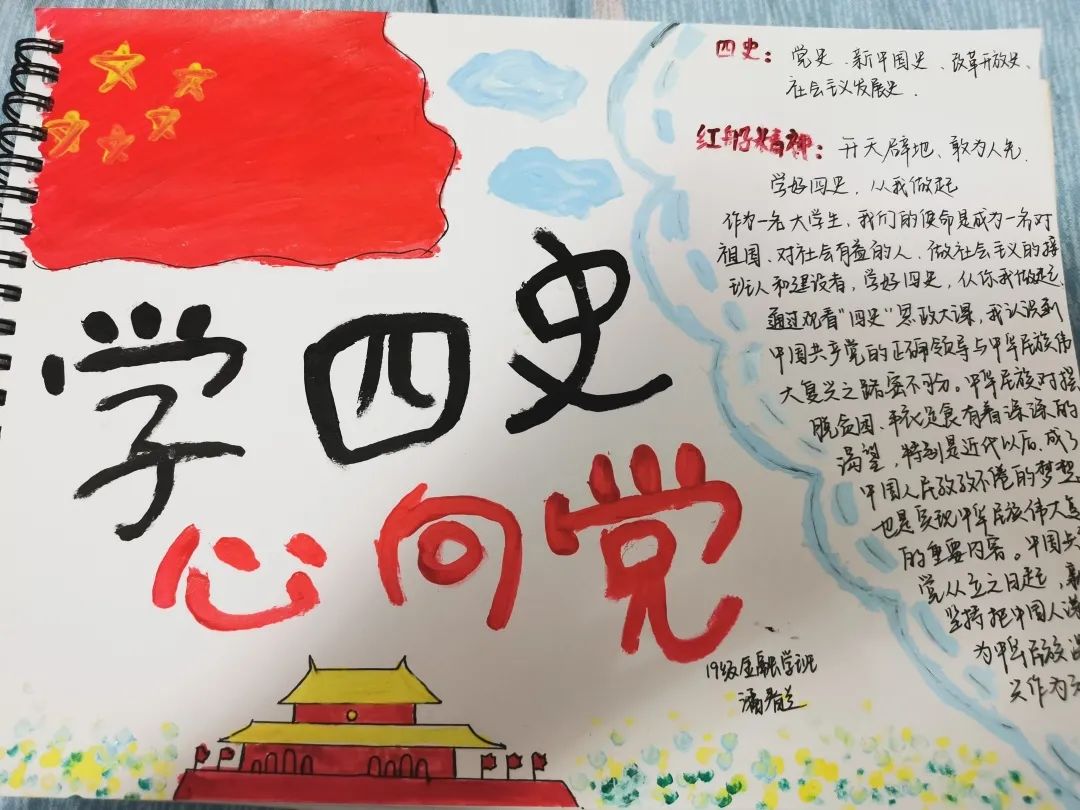 学四史
心向党
19级金融学班
四史：党史、新中国史、改革开放史、
社会主义发展史.
红船精神：开天辟地、敢为人先.
学好四史，从我做起
作为一名大学生，我们的使命是成为一名对
祖国、对社会有益的人、做社会主义的接
班人和建设者，学好四史，从你我做起.
通过观看“四史”思政大课，我认识到
中国共产党的正确领导与中华民族伟
大复兴之路密不可分。中华民族对摆
脱贫困、丰衣足食有着深深的
渴望，特别是近代以后，成了
中国人民孜孜不倦的梦想
也是实现中华民族伟大复
的重要内容。中国共
党从立之日起，
坚持把中国人
为中华民族
作为